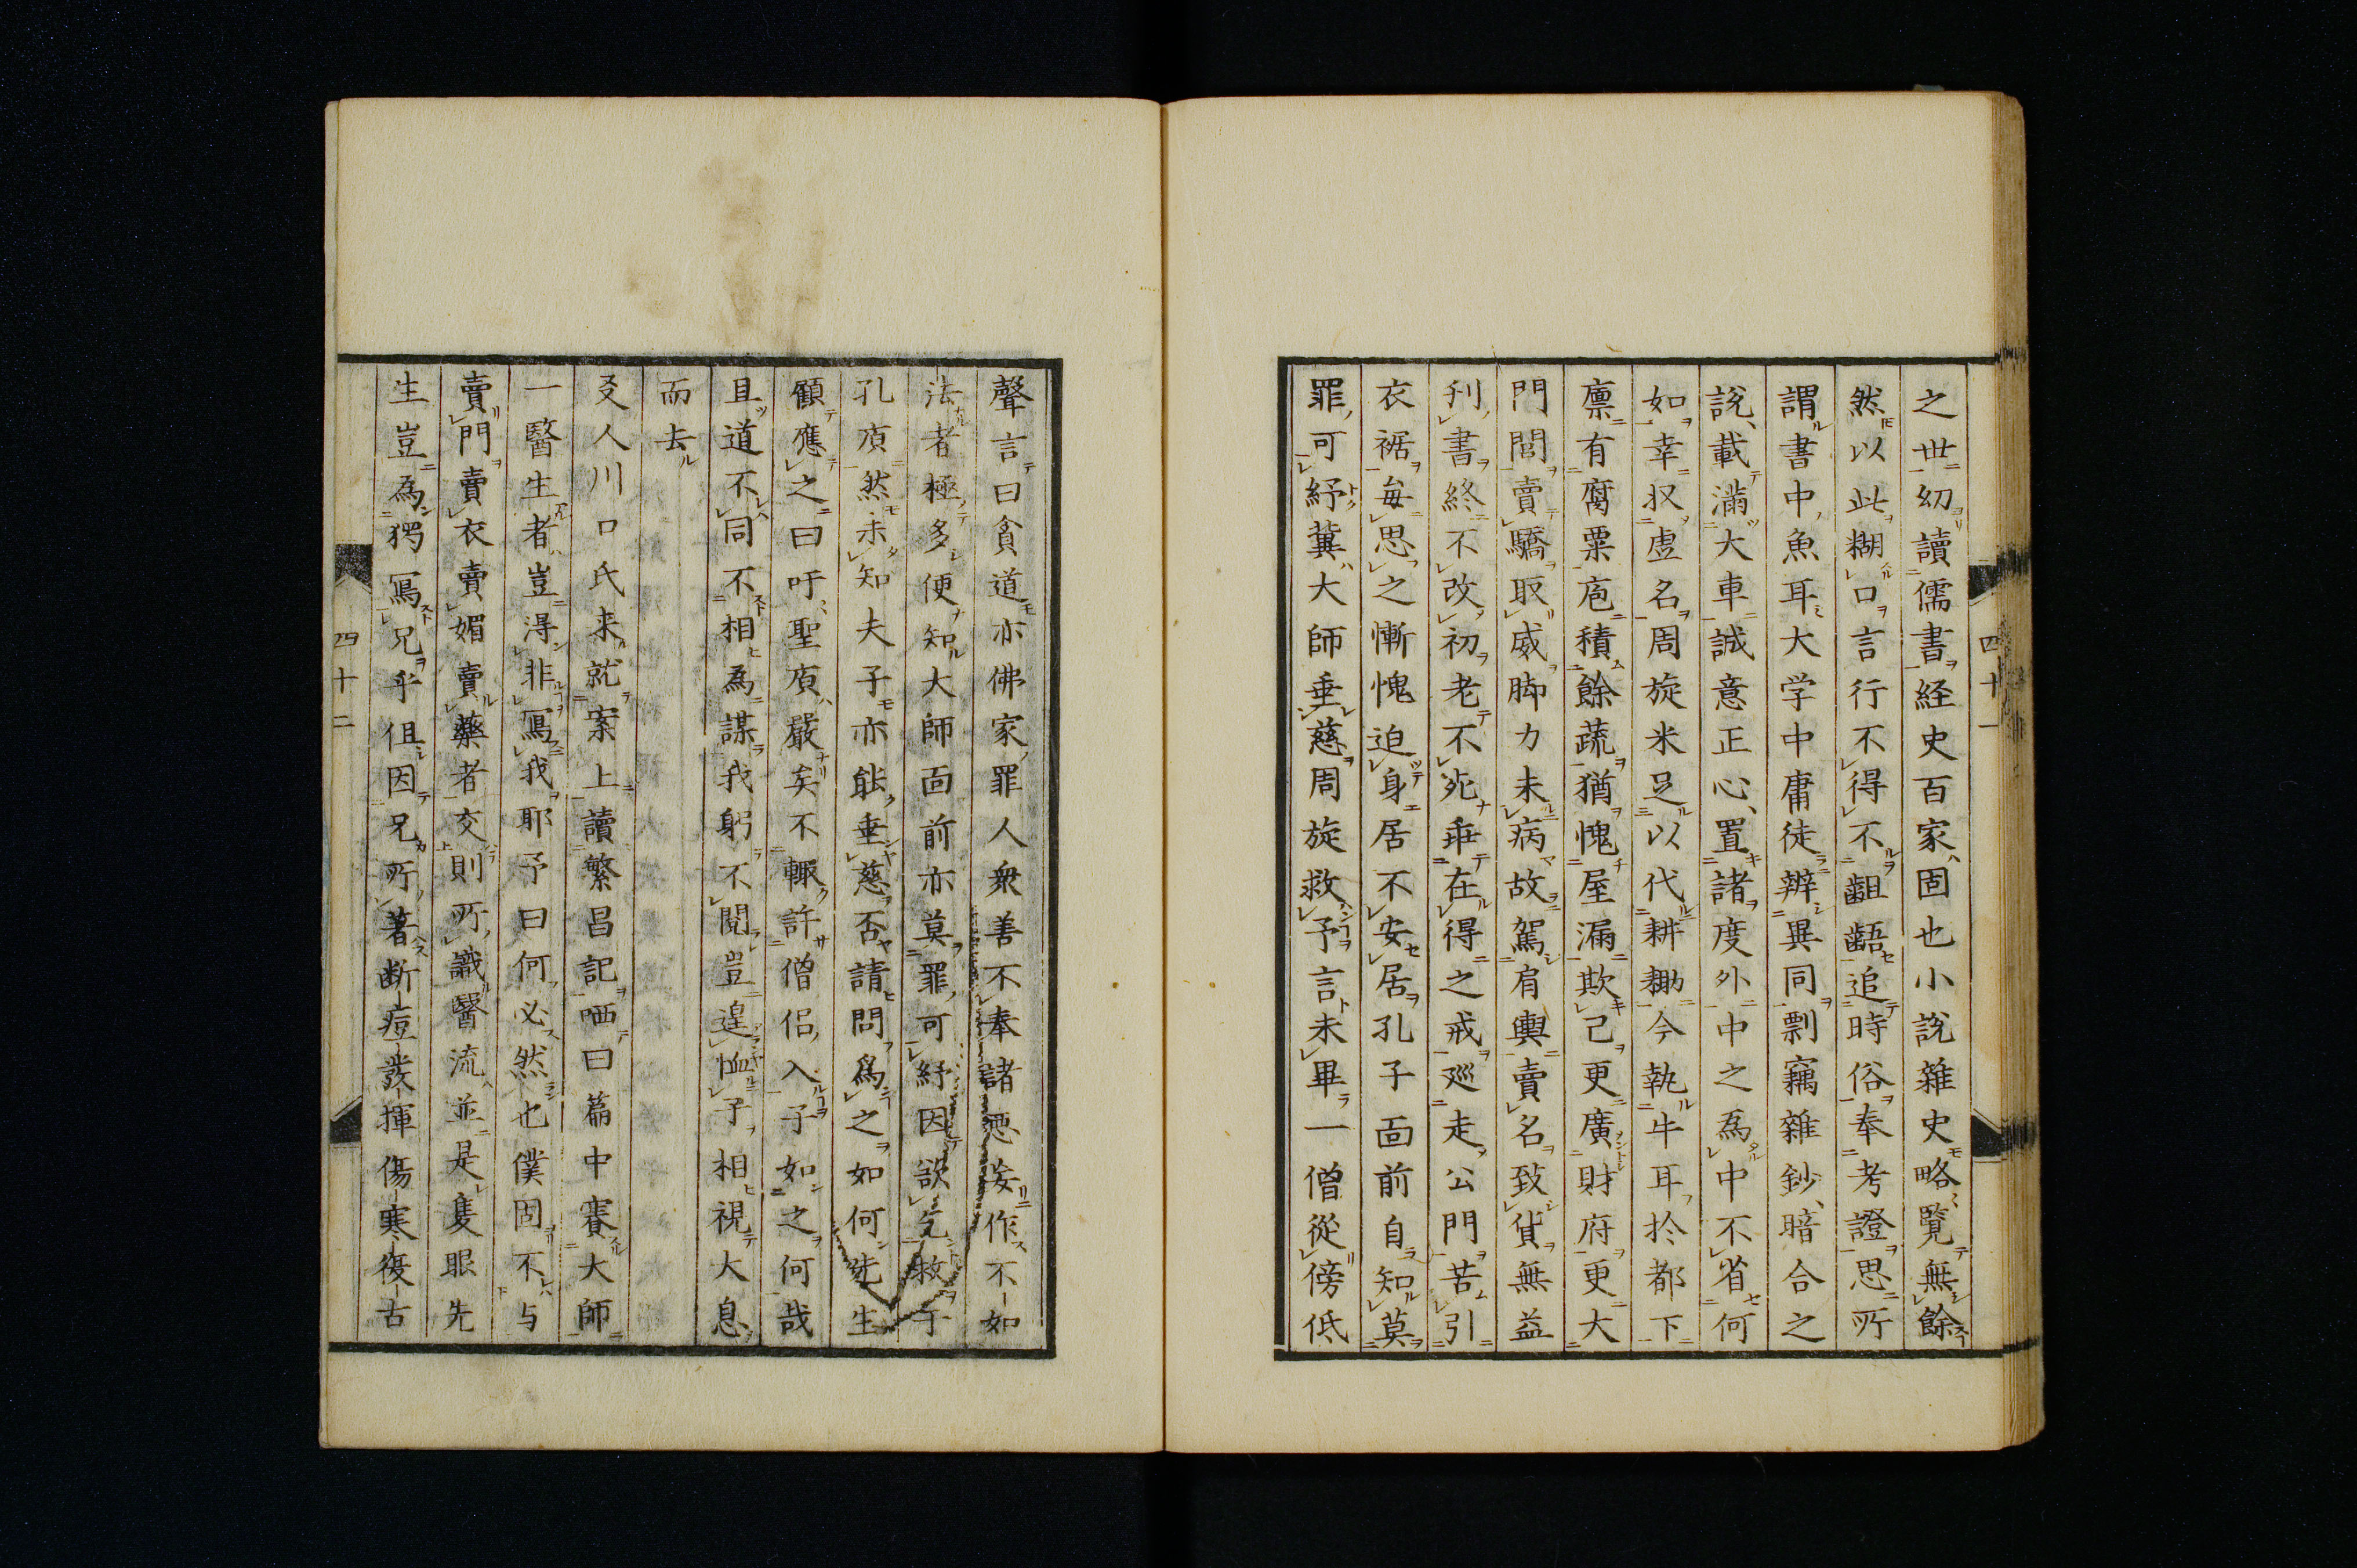 之世幼讀儒書経史百家固也小説雑史略覽無餘
然以此糊口言行不得不齟齬追時俗奉考證思所
謂書中魚耳大学中庸徒辨異同剽竊雑鈔暗合之
説載満大車誠意正心置諸度外中之為中不省何
如幸収虚名周旋米足以代耕耡今執牛耳於都下
廪有腐粟庖積餘蔬猶愧屋漏欺己更廣財府更大
門閭賣驕取威脚力未病故駕肩輿賣名致貨無益
刋書終不改初老不死垂在得之戒廵走公門苦引
衣裾毎思之慚愧追身居不安居孔子面前自知莫
罪可紓冀大師垂慈周旋救予言未畢一僧從傍低
四十一
聲言曰貪道亦佛家罪人衆善不奉諸悪妄作不如
法者極多便知大師面前亦莫罪可紓因欲乞救于
孔廟然未知夫子亦能垂慈否請問為之如何先生
顧應之曰吁聖廟嚴矣不輙許僧侶入子如之何哉
且道不同不相為謀我躬不閲豈遑恤子相視大息
而去
友人川口氏来就案上讀繁昌記哂曰篇中賽大師
一醫生者豈得非寫我耶予曰何必然也僕固不与
賣門賣衣賣媚賣藥者交則所識醫流並是隻眼先
生豈為獨寫兄乎但因兄所著断痘發揮傷寒復古
四十二